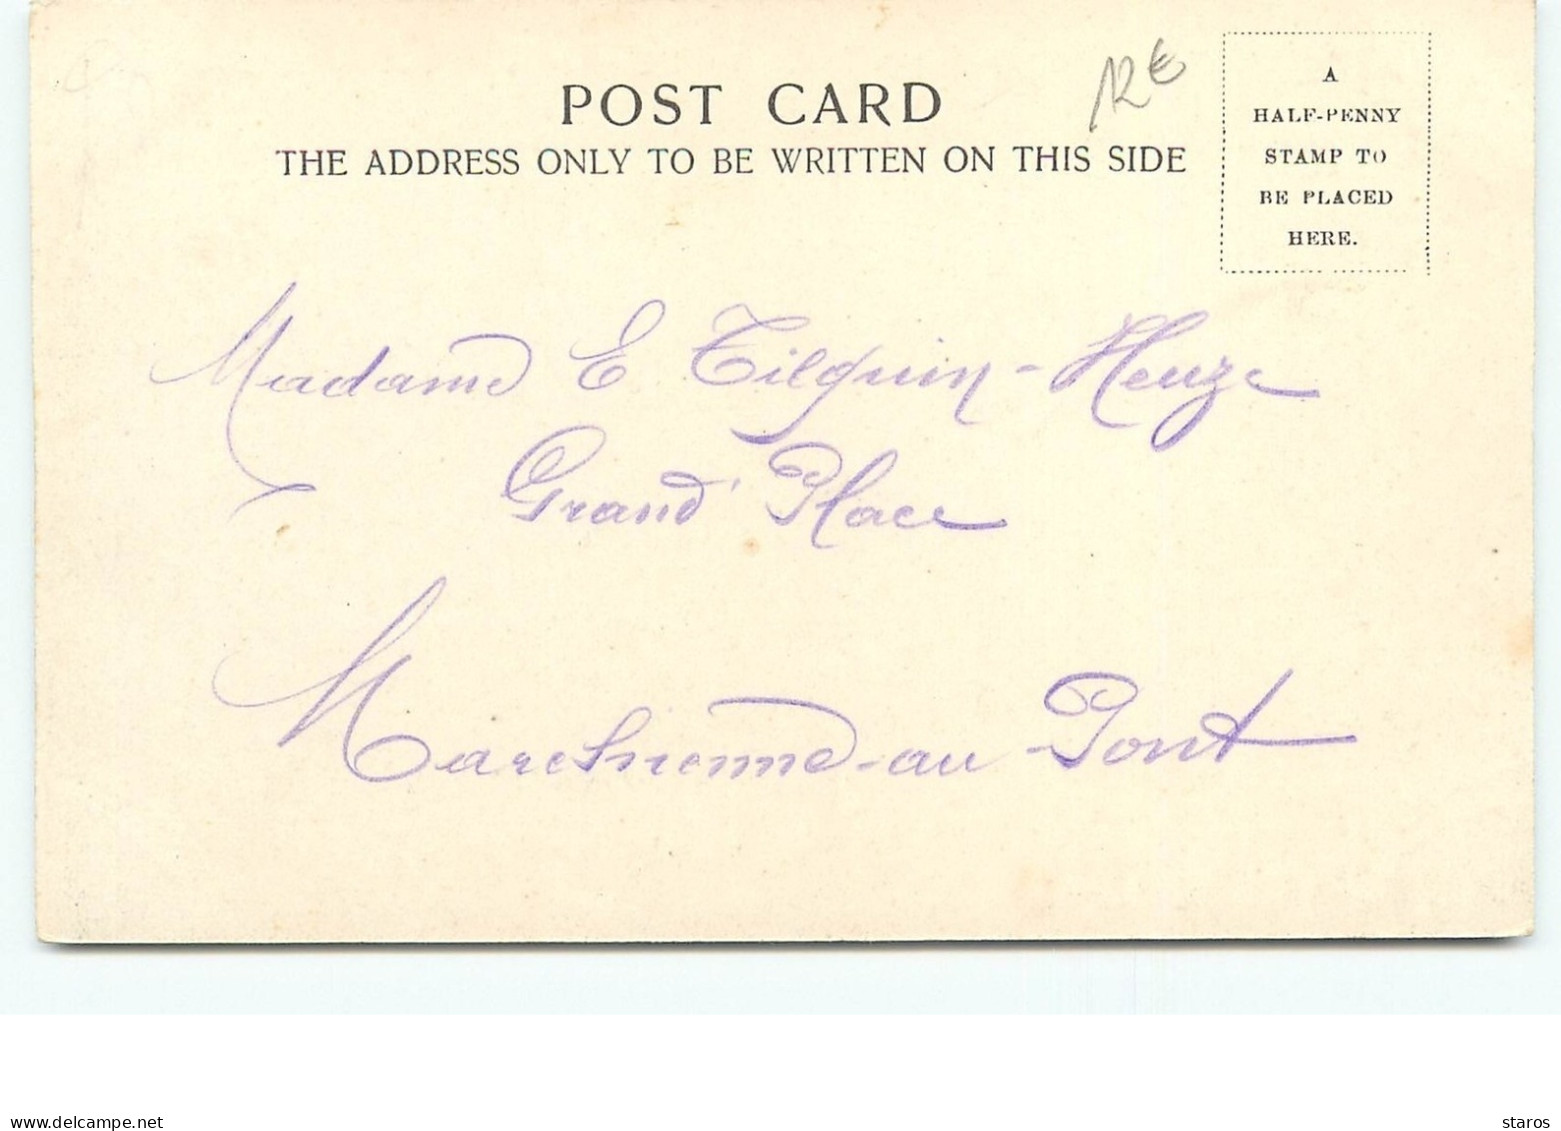 POST CARD
12€
THE ADDRESS ONLY TO BE WRITTEN ON THIS SIDE
A
HALF-PENNY
STAMP TO
BE PLACED
HERE.
Madame E Tilquin-Heuze
Grand' Place
Marchienne-au-Pont
www.delcampe.net
staros